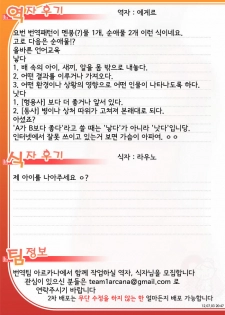 역자 후기
역자 : 에게르
요번 번역패턴이 멘붕(?)물 1개, 순애물 2개 이런 식이네요.
고로 다음은 순애물!?
올바른 언어교육
낳다
1. 배 속의 아이, 새끼, 알을 몸 밖으로 내놓다.
2. 어떤 결과를 이루거나 가져오다.
3. 어떤 환경이나 상황의 영향으로 어떤 인물이 나타나도록 하다.
낫다
1. [형용사] 보다 더 좋거나 앞서 있다.
2. [동사] 병이나 상처 따위가 고쳐져 본래대로 되다.
아셨죠?
'A가 B보다 좋다'라고 쓸 때는 '낳다'가 아니라 '낫다'입니다.
인터넷에서 잘못 쓰이고 있는거 보면 가슴이 아파여. ㅇㅇ
식자 후기
식자 : 라우노
제 아이를 나아주세요 ㅇ?
팀 정보
번역팀 아르카나에서 함께 작업하실 역자, 식자님을 모집합니다
관심이 있으신 분들은 team1arcana@gmail.com 로
연락주시기 바랍니다
2차 배포는 무단 수정을 하지 않는 한 얼마든지 배포 가능합니다